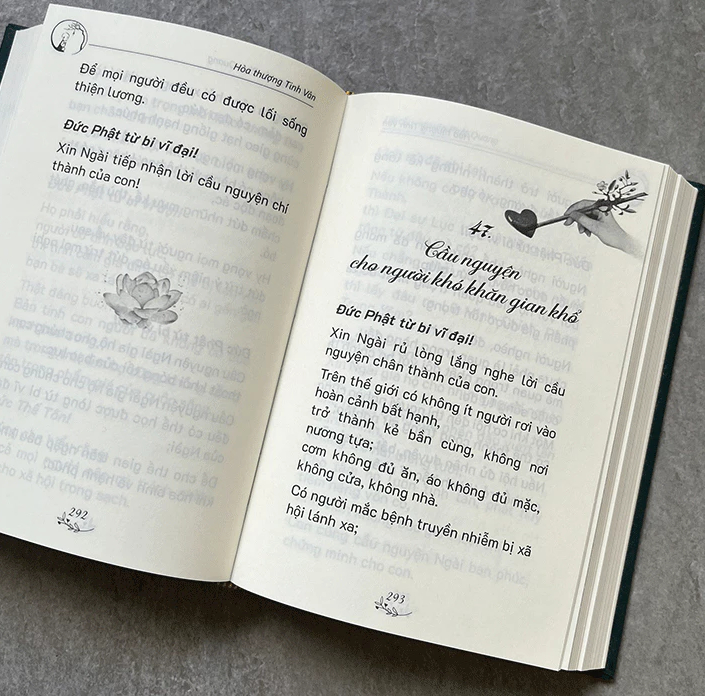 Hòa thượng Tinh Vân
Để mọi người đều có được lối sống
thiện lương.
Đức Phật từ bi vĩ đại!
Xin Ngài tiếp nhận lời cầu nguyện chí
thành của con!
292
47.
Cầu nguyện
cho người khó khăn gian khổ
Đức Phật từ bi vĩ đại!
Xin Ngài rủ lòng lắng nghe lời cầu
nguyện chân thành của con.
Trên thế giới có không ít người rơi vào
hoàn cảnh bất hạnh,
trở thành kẻ bần cùng, không nơi
nương tựa;
cơm không đủ ăn, áo không đủ mặc,
không cửa, không nhà.
Có người mắc bệnh truyền nhiễm bị xã
hội lánh xa;
293